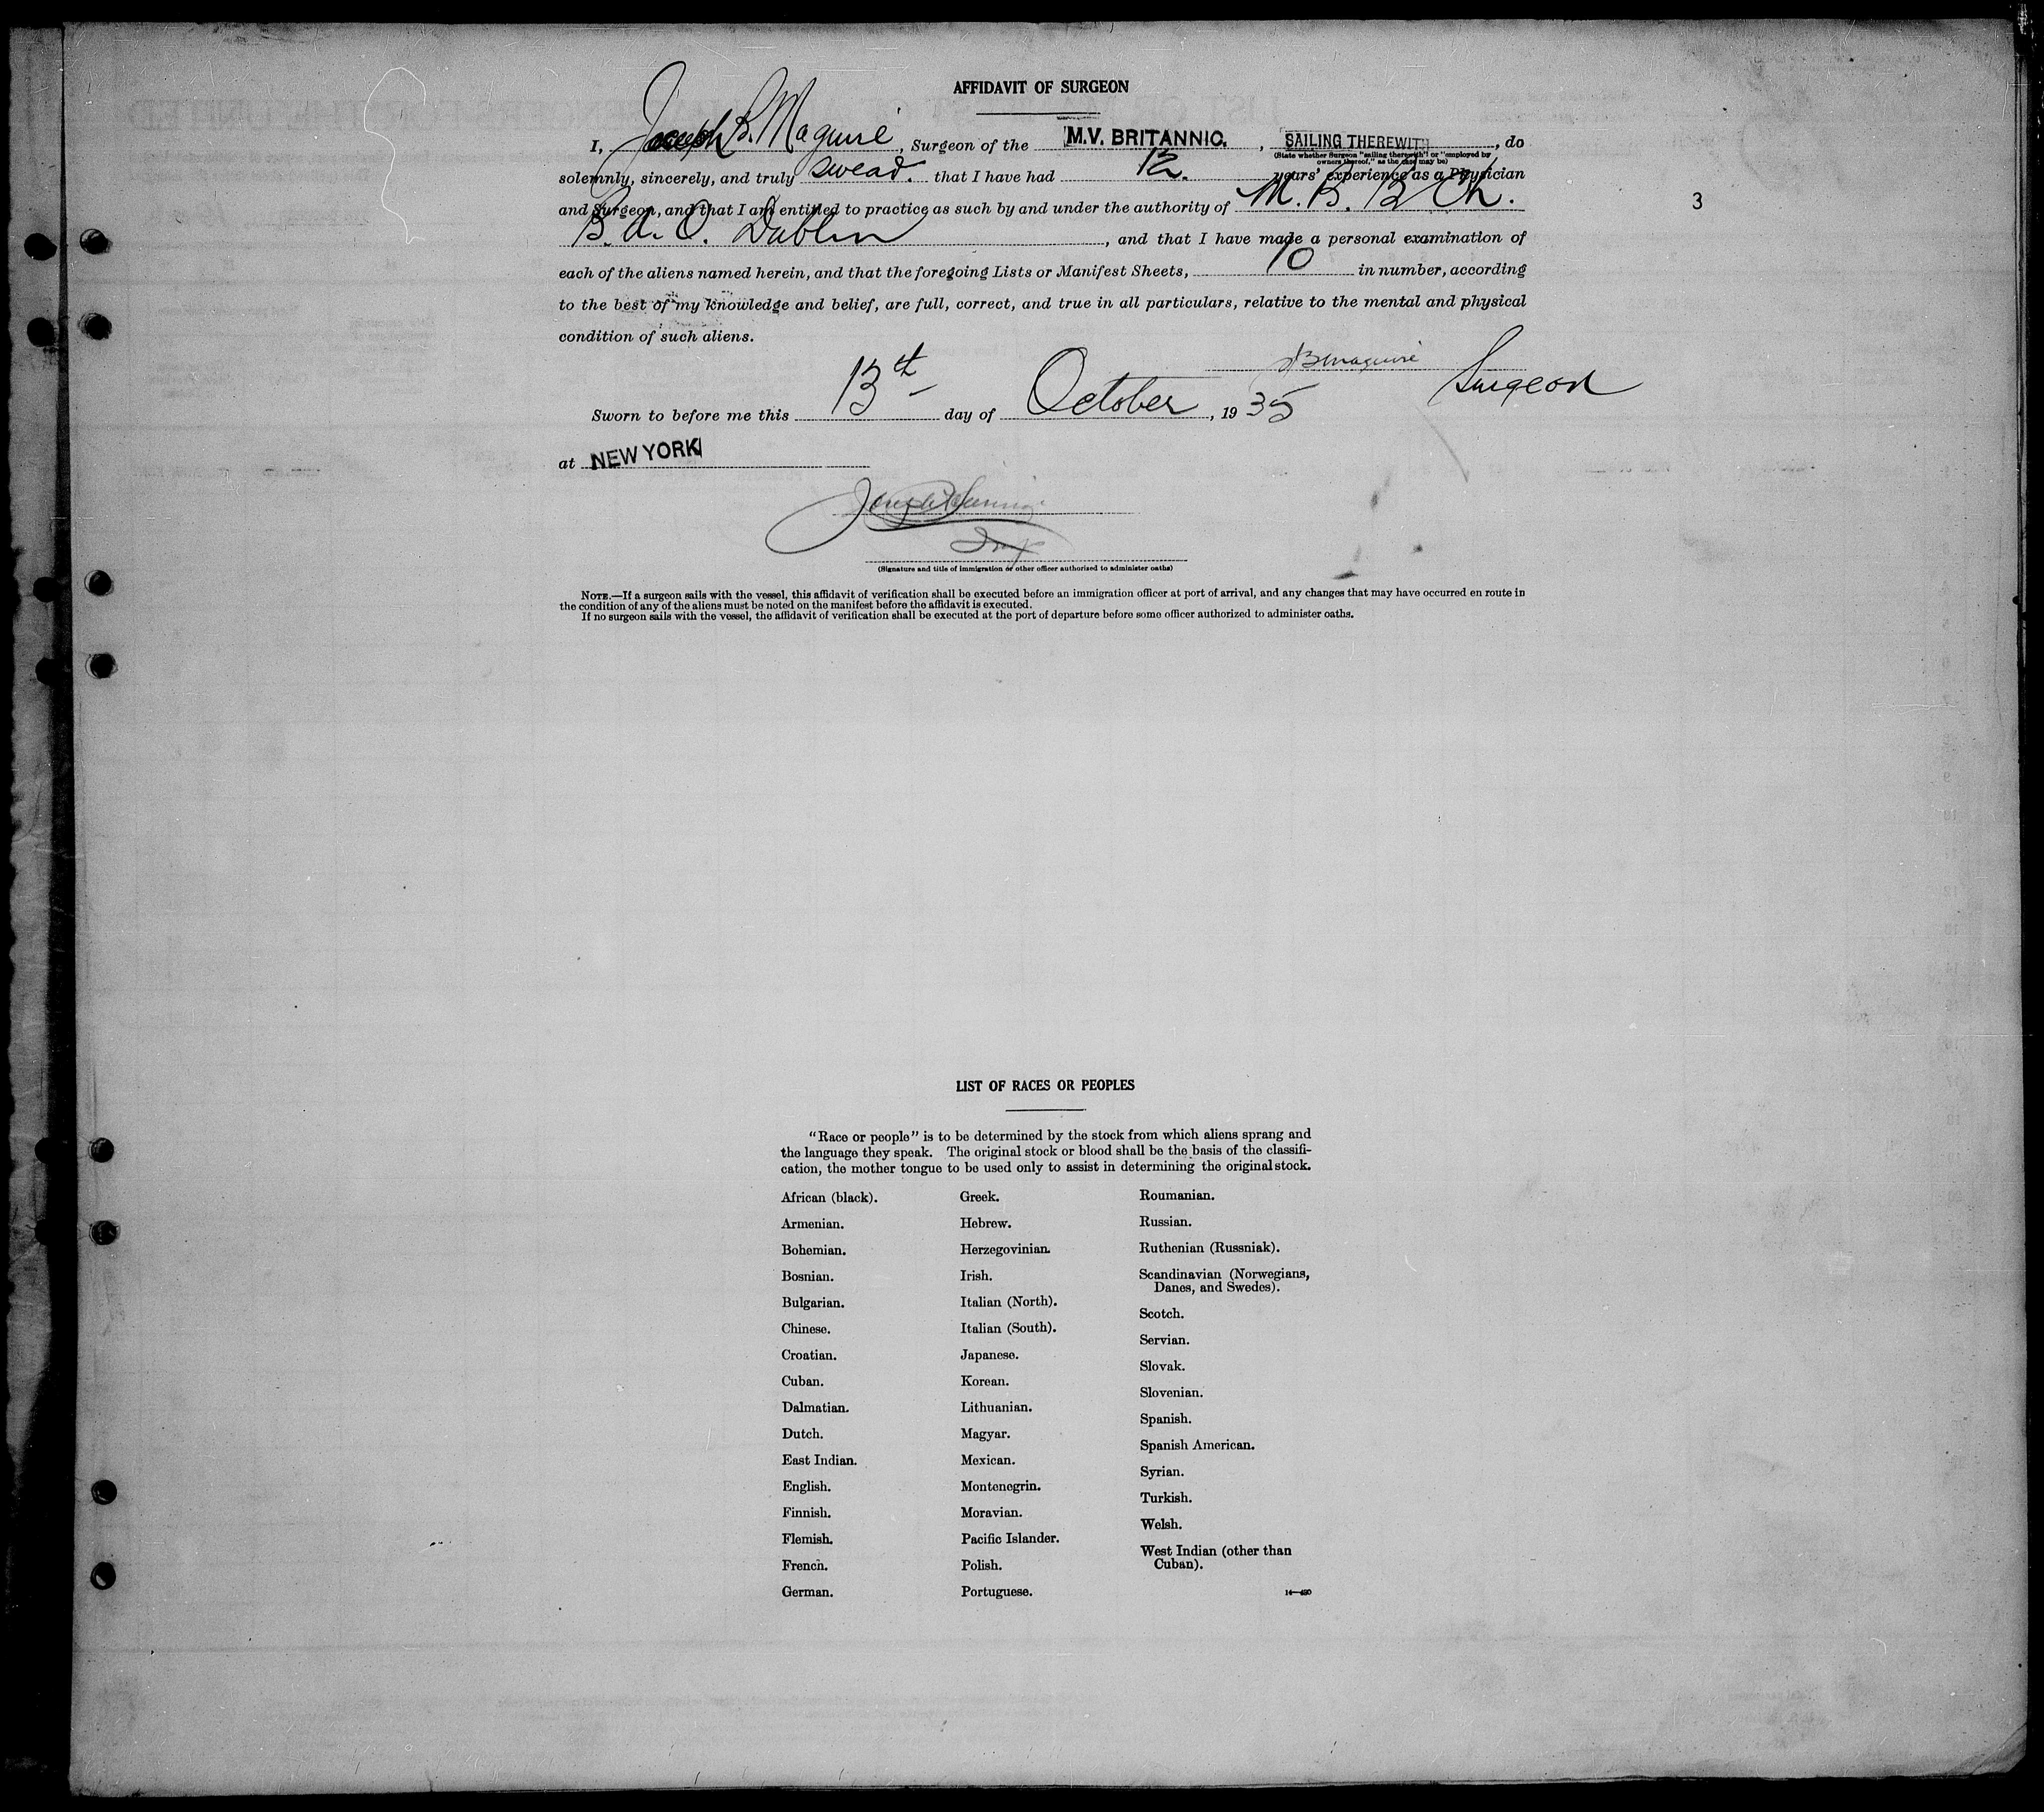 AFFIDAVIT OF SURGEON
I, Joseph B. Maguire, Surgeon of the M.V. BRITANNIC., SAILING THEREWITH, do
(State whether Surgeon "sailing therewith" or "employed by
owners thereof," as the case may be)
solemnly, sincerely, and truly swear. that I have had 12. years' experience as a Physician
and Surgeon, and that I am entitled to practice as such by and under the authority of M.B. B Ch.
B.A.O. Dublin, and that I have made a personal examination of
each of the aliens named herein, and that the foregoing Lists or Manifest Sheets, 10 in number, according
to the best of my knowledge and belief, are full, correct, and true in all particulars, relative to the mental and physical
condition of such aliens.
JBMaguire Surgeon
Sworn to before me this 13th day of October, 1935
at NEW YORK
(Signature and title of immigration or other officer authorized to administer oaths)
NOTE.—If a surgeon sails with the vessel, this affidavit of verification shall be executed before an immigration officer at port of arrival, and any changes that may have occurred en route in
the condition of any of the aliens must be noted on the manifest before the affidavit is executed.
If no surgeon sails with the vessel, the affidavit of verification shall be executed at the port of departure before some officer authorized to administer oaths.
3
LIST OF RACES OR PEOPLES
"Race or people" is to be determined by the stock from which aliens sprang and
the language they speak. The original stock or blood shall be the basis of the classifi-
cation, the mother tongue to be used only to assist in determining the original stock.
African (black).
Armenian.
Bohemian.
Bosnian.
Bulgarian.
Chinese.
Croatian.
Cuban.
Dalmatian.
Dutch.
East Indian.
English.
Finnish.
Flemish.
French.
German.
Greek.
Hebrew.
Herzegovinian.
Irish.
Italian (North).
Italian (South).
Japanese.
Korean.
Lithuanian.
Magyar.
Mexican.
Montenegrin.
Moravian.
Pacific Islander.
Polish.
Portuguese.
Roumanian.
Russian.
Ruthenian (Russniak).
Scandinavian (Norwegians,
Danes, and Swedes).
Scotch.
Servian.
Slovak.
Slovenian.
Spanish.
Spanish American.
Syrian.
Turkish.
Welsh.
West Indian (other than
Cuban).
14—420